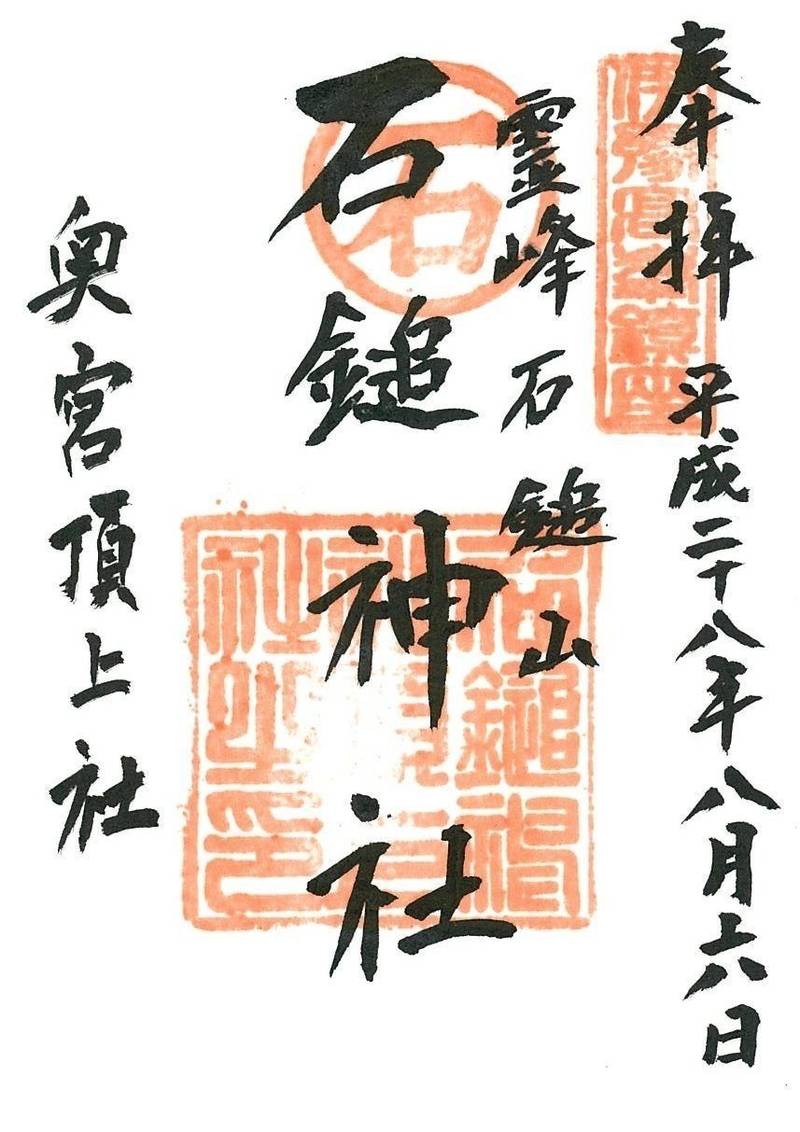 奉拝 平成二十八年八月六日
伊豫高嶺鎮座
霊峰石鎚山
石鎚神社
石
奥宮頂上社